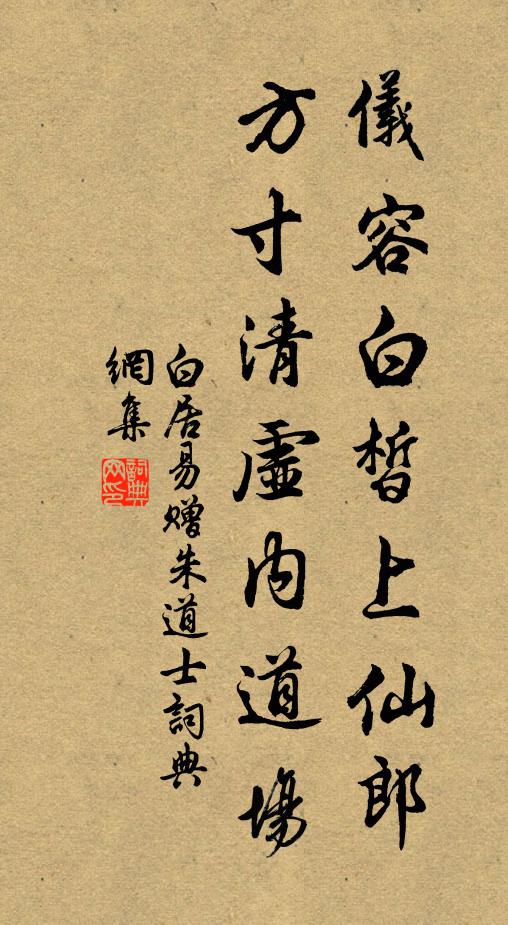 儀容白皙上仙郎
方寸清虛內道場
白居易贈朱道士詞典
網集
詞典
网印